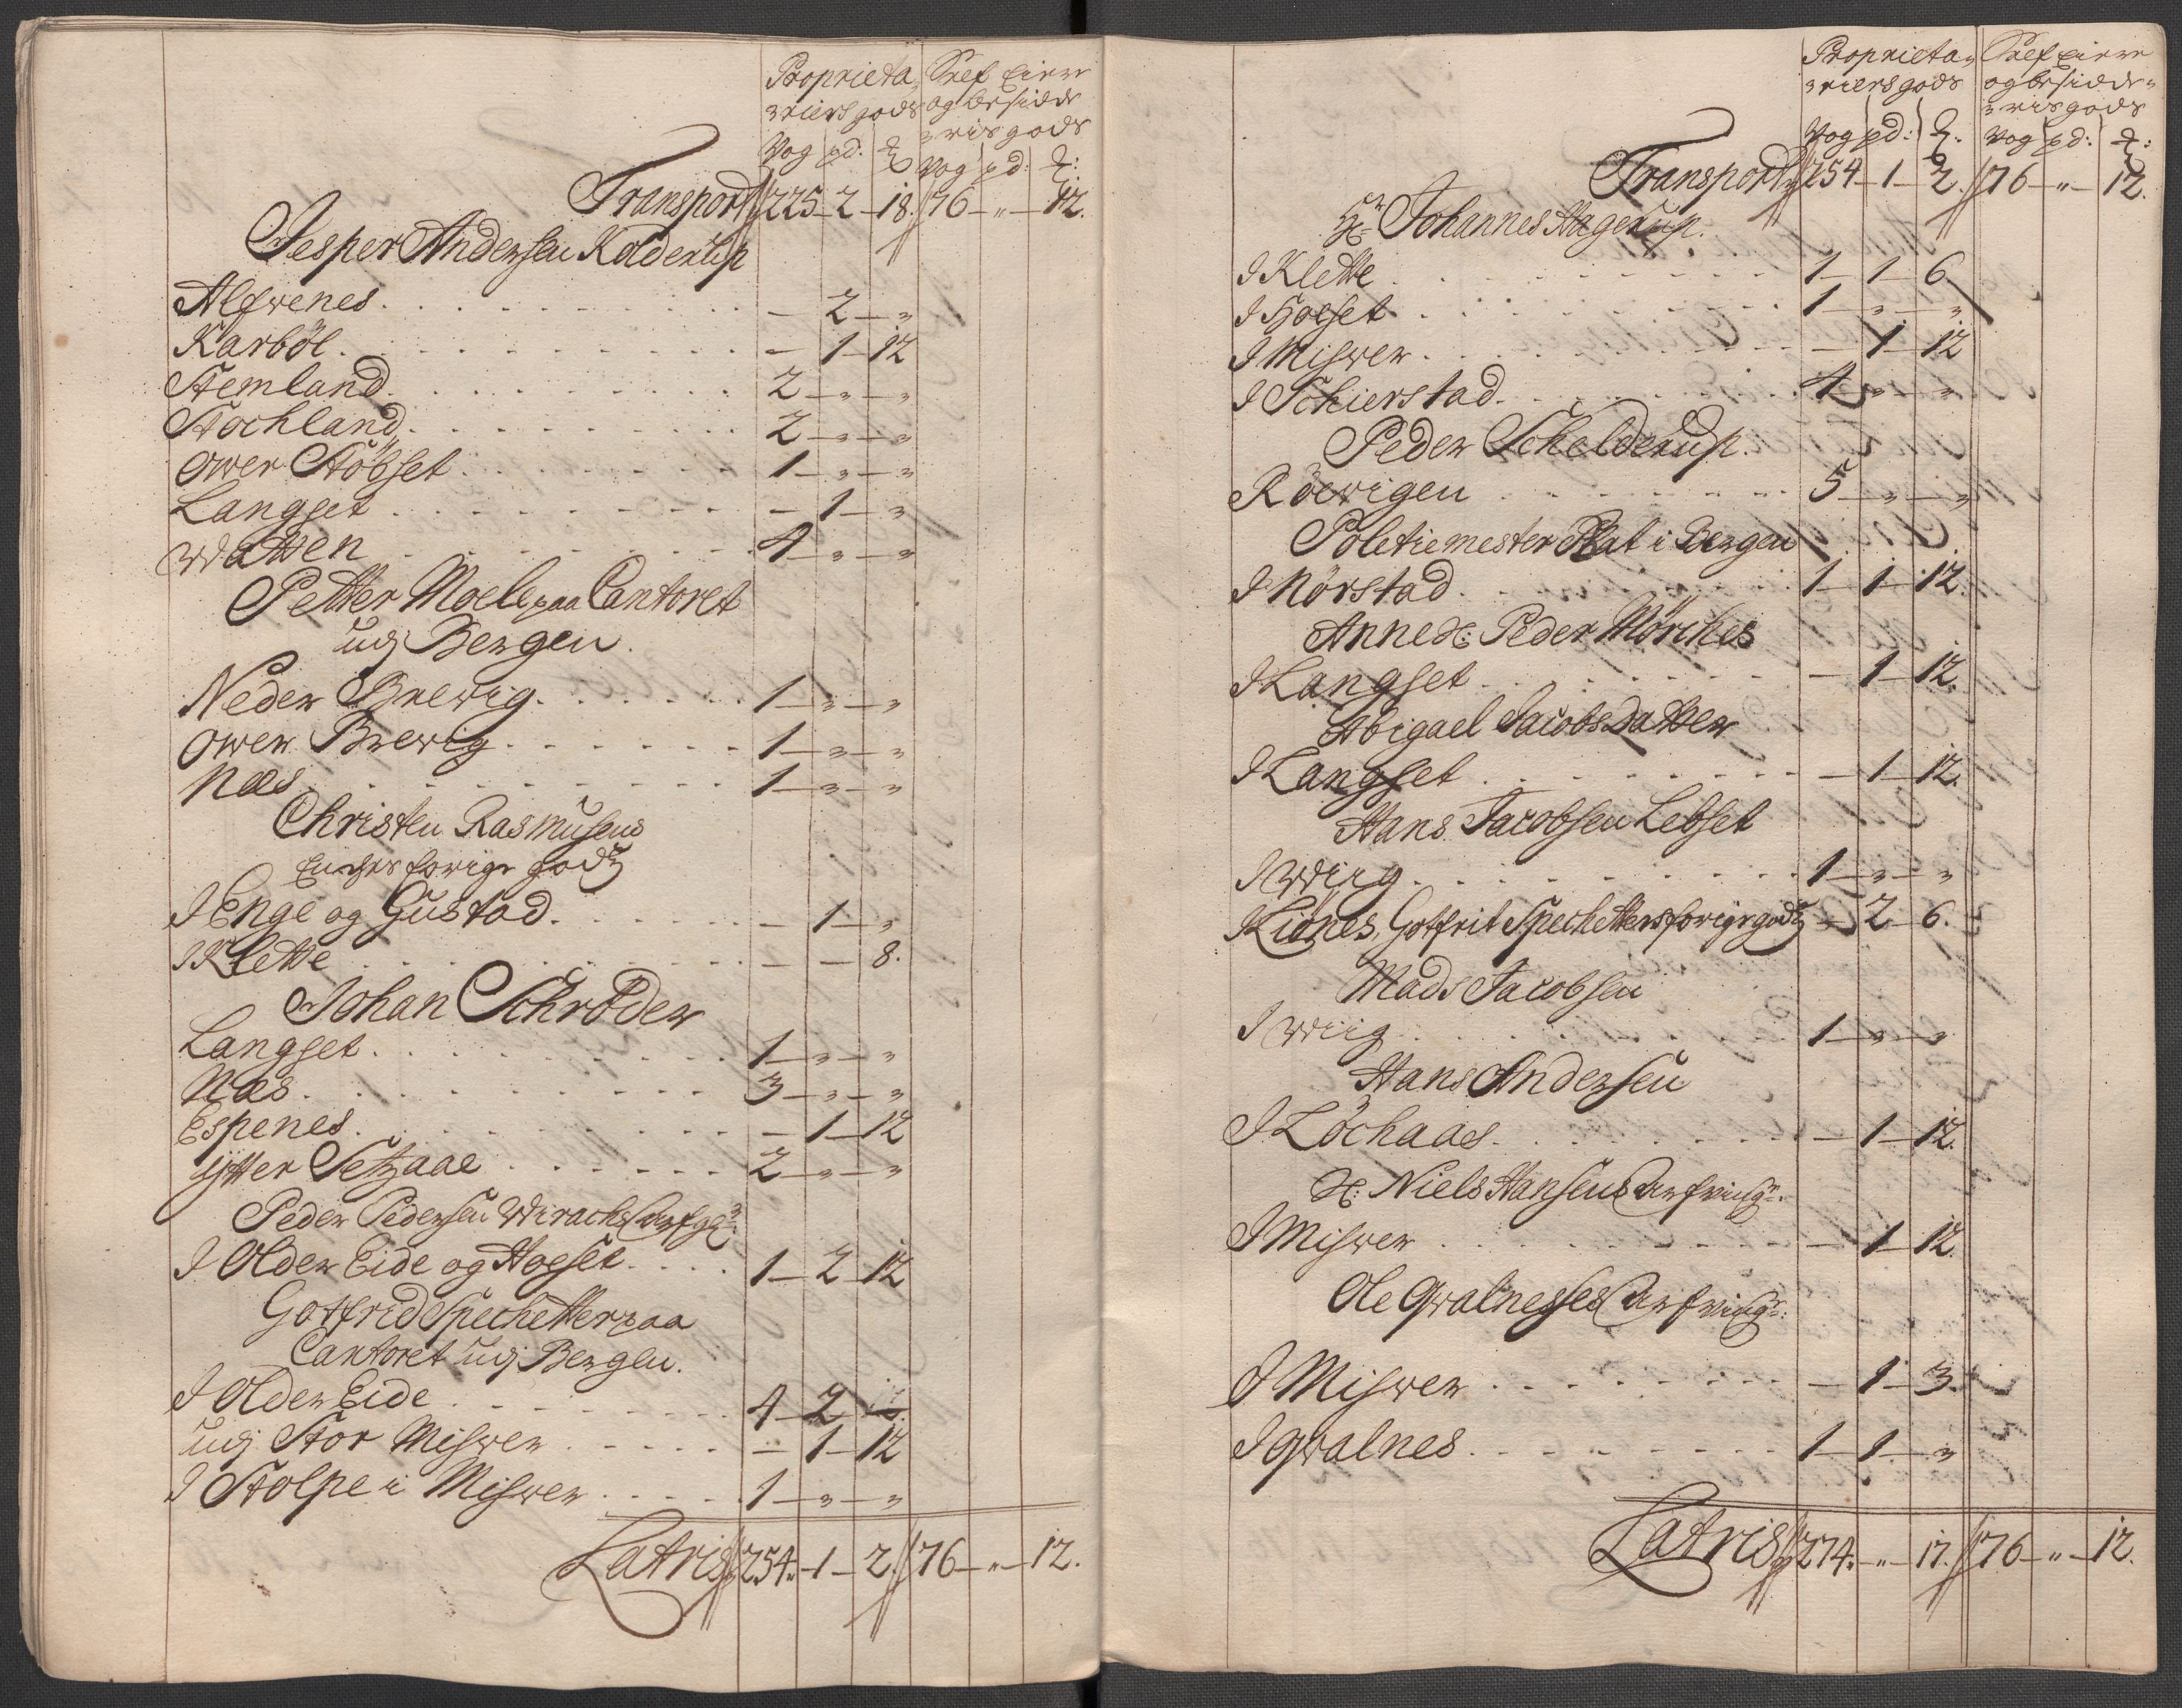 Proprieta- Self Eierr
riers gods og besidde
ris gods
Vog pd: ℔ Vog pd: ℔:
Transport 225 - 2 - 18. 76 - " - 12.
Jesper Andersen Kaderup
Alfwenes . . . - 2 - "
Karböl . . . - 1 - 12
Stemland . . . 2 - " - "
Stochland . . . 2 - " - "
Ower Stöbset . . . 1 - " - "
Langset . . . - 1 - "
Watten . . . 4 - " - "
Petter Moele paa Cantoret
udj Bergen.
Neder Brewig . . . 1 - " - "
Ower Brewig . . . 1 - " - "
Næs . . . 1 - " - "
Christen Rasmusens
Enches forige godz
J Enge og Gustad . . . - 1 - "
J Klette . . . - - 8.
Johan Schrøder
Langset . . . 1 - " - "
Næs . . . 3 - " - "
Espenes . . . - 1 - 12
Ytter Setzaae . . . 2 - " - "
Peder Pedersen Wirachs
J Older Eide og Hoset . . . 1 - 2 - 12
Gotfrid Spechetter paa
Cantoret udj Bergen.
J Older Eide . . . 4 - 2
udj Stor Miswer . . . - 1 - 12
J Stolpe i Miswer . . . 1 - " - "
Latris 254. - 1 - 2. 76 - " - 12.
Proprieta- Self Eierr
riers gods og besidde-
ris gods
Vog pd: ℔. Vog pd: ℔:
Transport 254 - 1 - 2. 76 - " - 12.
Hr Johannes Hagerup.
J Klette . . . 1 - 1 - 6
J Hoeset . . . 1 - " - "
J Miswer . . . - 1 - 12
J Schierstad . . . 4 - " - "
Peder Schelderup.
Röewigen . . . 5 - " - "
Politiemester Plat i Bergen
J Nörstad . . . 1 - 1 - 12.
Anne H: Peder Mörches
J Langset . . . - 1 - 12.
Abigael Jacobsdatter
J Langset . . . - 1 - 12.
Hans Jacobsen Lebset
J Wiig . . . 1 - " - "
J Liönes, Gotfrit Spechetters forige godz - 2 - 6.
Mads Jacobsen
J Wiig . . . 1 - " - "
Hans Andersen
J Löchaas . . . - 1 - 12.
H: Niels Hansens Arfving:
J Miswer . . . - 1 - 12.
Ole Qwalnesses Arfving:
J Miswer . . . - 1 - 3.
J Qwalnes . . . 1 - 1 - "
Latris 274. - " - 17. 76 - " - 12.